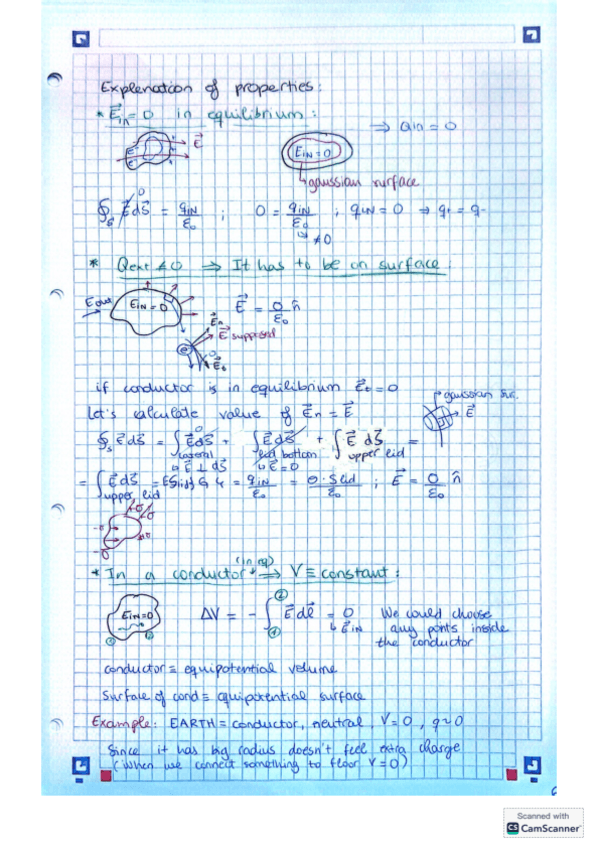 Explenation of properties:
* E⃗in = 0 in equilibrium:
⇒ Qin = 0
E⃗
EIN = 0
gaussian surface
∮s E⃗dS⃗ = qIN/ε0 ; 0 = qIN/ε0 ; qIN = 0 → q+ = q-
≠0
* Qext ≠ 0 ⇒ It has to be on surface:
E out
EIN = 0
E⃗ = σ/ε0 n̂
E⃗n
E⃗ supposed
E⃗t
if conductor is in equilibrium E⃗t = 0
gaussian sur.
Let's calculate value of E⃗n = E⃗
E⃗
∮s E⃗dS⃗ = ∫lateral E⃗dS⃗ + ∫lid bottom E⃗dS⃗ + ∫upper lid E⃗ dS⃗ =
E⃗ ⊥ dS⃗
E⃗ = 0
= ∫upper lid E⃗dS⃗ = qIN/ε0 = σ·Slid/ε0 ; E⃗ = σ/ε0 n̂
+σ
-σ
* In a conductor (in eq) ⇒ V ≡ constant:
EIN = 0
① ②
ΔV = - ∫①② E⃗dl⃗ = 0
E⃗IN
We could choose
any ponts inside
the conductor
conductor ≡ equipotential volume
Surface of cond ≡ equipotential surface
Example: EARTH = conductor, neutral, V=0, q≈0
Since it has big radius doesn't feel extra charge
(When we connect something to floor V=0)
Scanned with
CS CamScanner